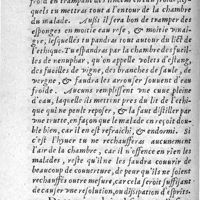 froid en trempant des linceux en eau froide, les-
quels tu mettras tout à l'entour de la chambre
du malade. Aussi il sera bon de tramper des
esponges en moitié eau rose, & moitié vinai-
gre, lesquelles tu pandras autour du lict de
l'ethique. Tu espandras par la chambre des fueil-
les de nenuphar, qu'on appelle volets d'estang,
des fueilles de vigne, des branches de saule, de
vergne, & faudra les arrouser souvent d'eau
froide. Aucuns remplissent une cruye pleine
d'eau, laquelle ils mettent pres du lit de l'ethi-
que qui ne peut reposer, & la faut distiller par
une trette, en façon que le malade en reçoit dou-
ble bien, car il en est refraichi, & endormi. Si
c'est l'hyuer tu ne rechaufferas aucunement
l'air de la chambre, car il n'offence en rien les
malades, reste qu'il ne les faudra couurir de
beaucoup de couuerture, de peur qu'ils ne soient
rechauffés outre mesure, car cela seroit suffisant
de causer une resolution, ou dissipation d'esprits.